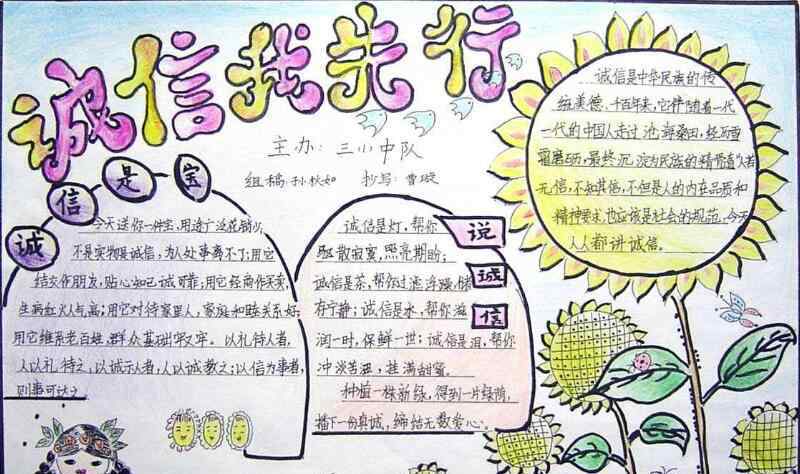 诚信我先行
主办：三小中队
组稿：孙秋如 抄写：曹璇
诚信是宝
今天送你一件宝，用途广泛花销少，
不是实物是诚信，为人处事离不了；用它
结交作朋友，贴心知己诚可靠；用它经商作买卖，
生病红火人气高；用它对待家里人，家庭和睦关系好；
用它维系老百姓，群众基础牢又牢。以礼待人者，
人以礼待之，以诚示人者，人以诚教之；以信为事者，
则事可达之
说诚信
诚信是灯，帮你
驱散寂寞，照亮期盼；
诚信是茶，帮你过滤浮躁，储
存宁静；诚信是水，帮你滋
润一时，保鲜一世；诚信是泪，帮你
冲淡苦涩，挂满甜蜜。
种植一株新绿，得到一片绿荫，
播下一份真诚，缔结无数爱心。
诚信是中华民族的传
统美德，千百年来，它伴随着一代
一代的中国人走过沧海桑田，经历雪
霜磨砺，最终沉淀为民族的精骨遗
无信，不知其俗，不但是人的内在品质和
精神要求，也应该是社会的规范，今天
人人都讲诚信。